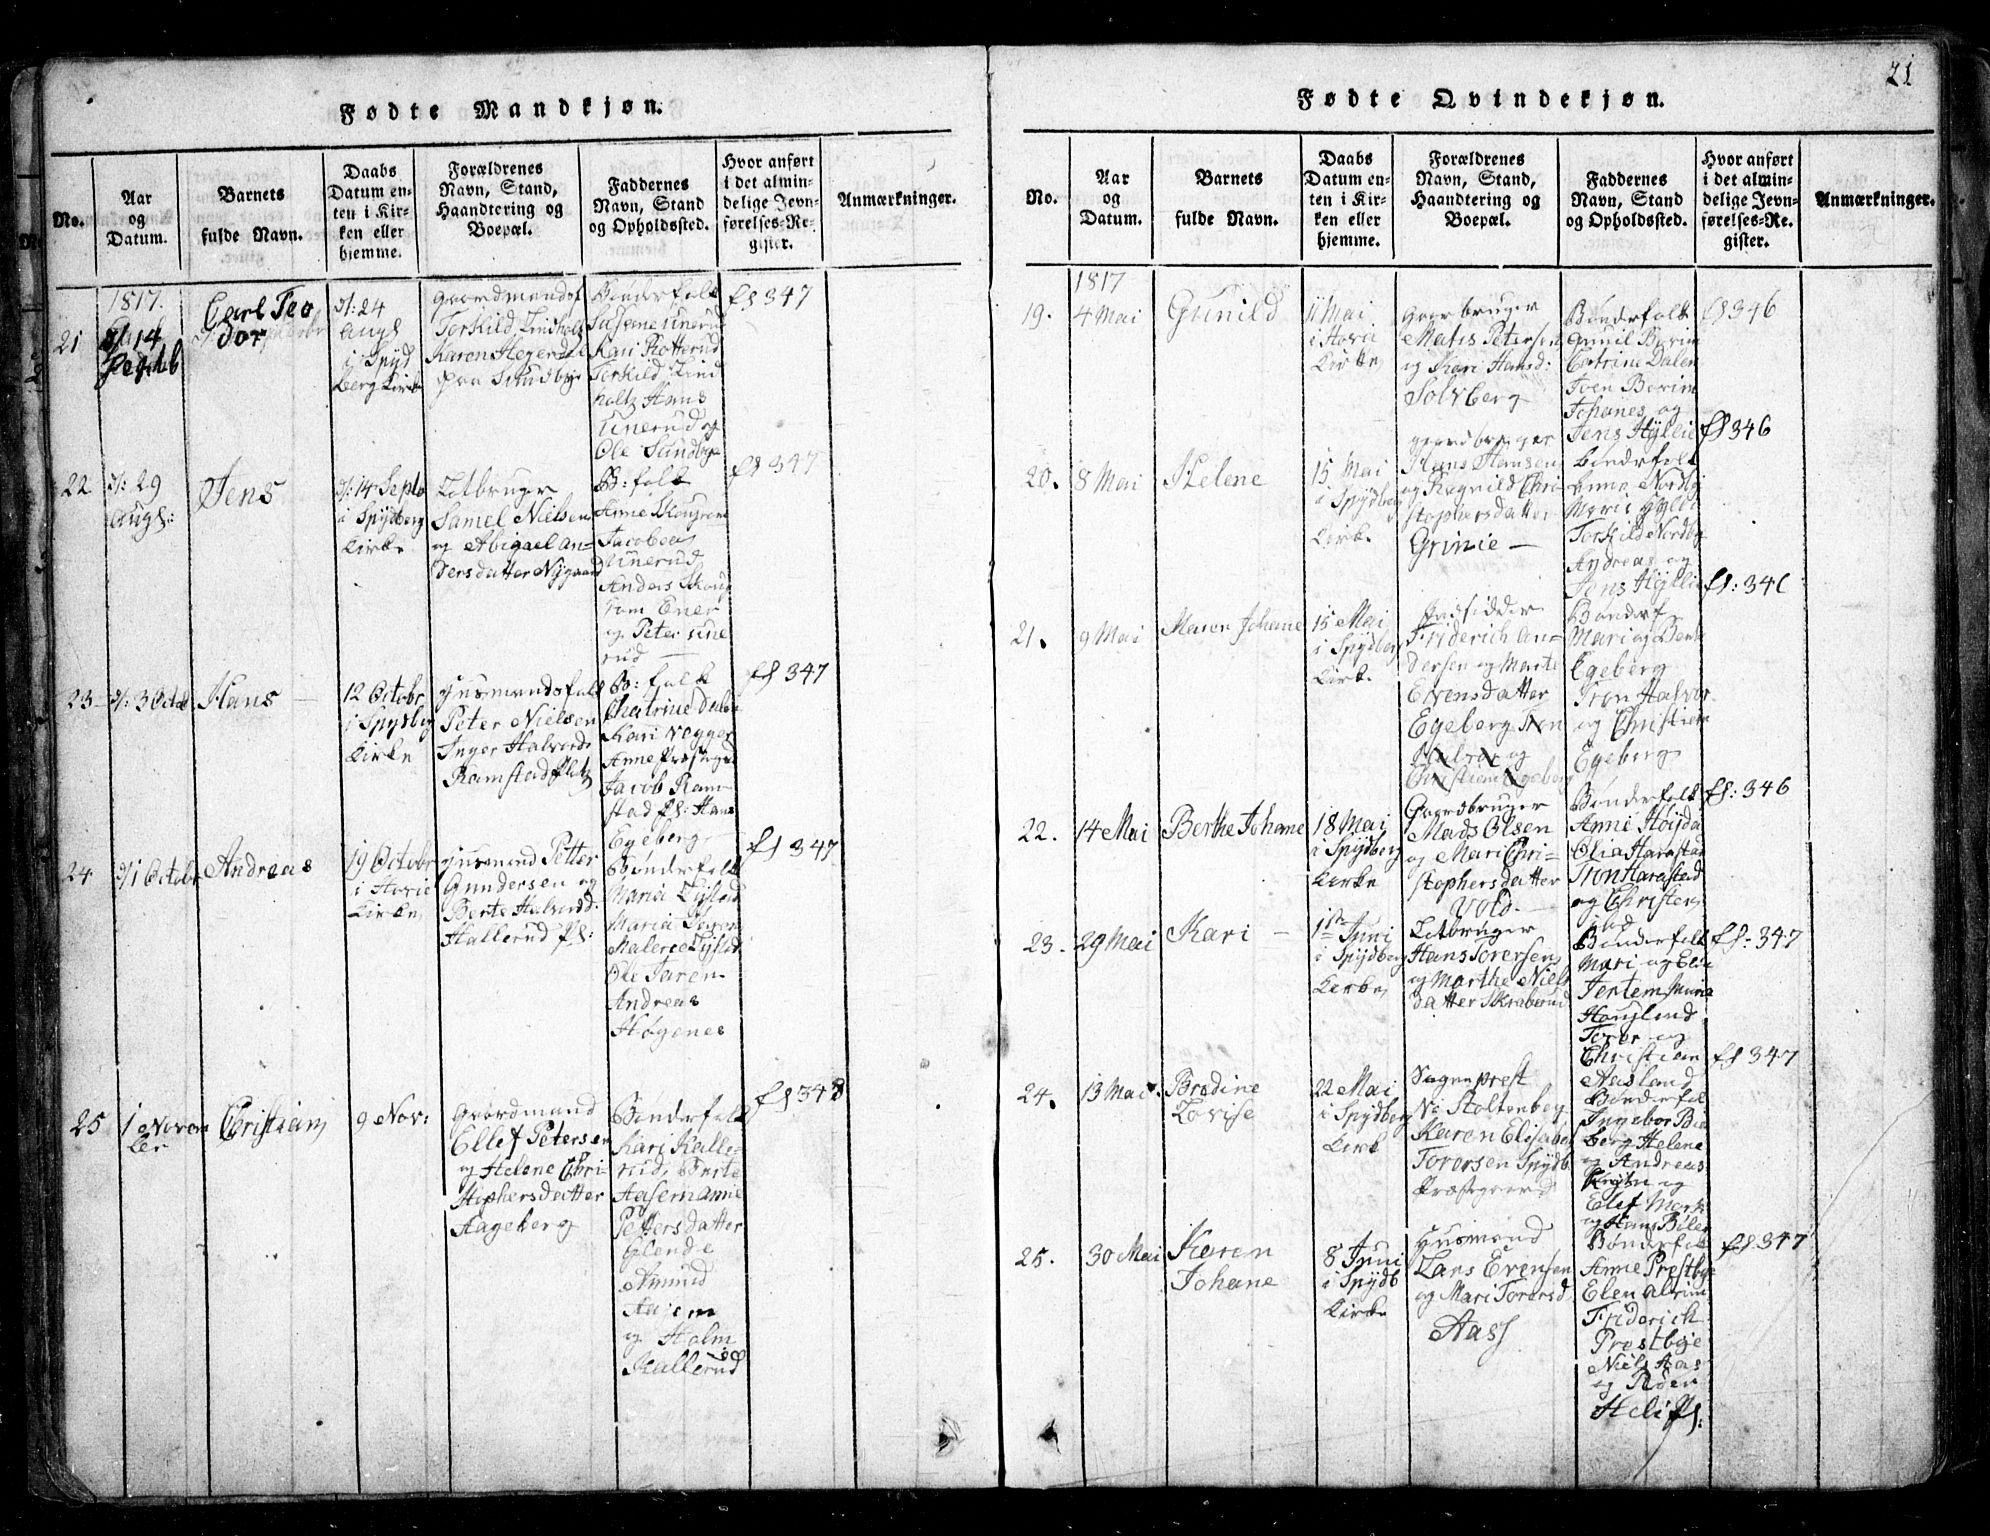 21
Fødte Mandkjøn.
No.
Aar
og
Datum.
Barnets
fulde Navn.
Daabs
Datum en-
ten i Kir-
ken eller
hjemme.
Forældrenes
Navn, Stand,
Haandtering og
Boepæl.
Faddernes
Navn, Stand
og Opholdssted.
Hvor anført
i det almin-
delige Jevn-
førelses-Re-
gister.
Anmærkninger.
1817.
21
14
Carl Teo
dor
24
Augs
i Spyd
berg Kirke
Torkild Lindholt
Karen
Bønderfolk
Kari
Torkild Lind
holtz Hans
Unerud og
Ole Sundbye
347
22
29
Augs:
Jens
14 Septb
i Spydberg
Kirke
Letbruger
Samel Nielsen
og Abigael An-
dersdatter Nygaard
B: folk
Anne
Jacobea
Unerud
Anders Skou
Ener
og Peter Une
rud
347
23
3 Octob
Hans
12 Octobr
i Spydberg
Kirke
Husmandsfolk
Peter Nielsen
Inger Halvord
Ramstad Platz
B: folk
Chatrine Dalen
Kari
Anne
Jacob Ram
stad Pl: Hans
Egeberg
347
24
1 Octobr
Andreas
19 Octobr
i Hovie
Kirke
Husmand Petter
Gundersen og
Berte Halvord
Hallerud Pl:
Bønderfolk
Maria
Maria
Ole
Andreas
Høgenes
347
25
1 Novem
ber
Christian
9 Nov:
Gaardmand
Ellef Petersen
og Helene Chri-
stophersdatter
Aageberg
Bønderfolk
Kari Kalle-
rud, Berte
Aasem Anne
Pettersdatter
Glende
Amund
Aasem
og Holm
Kallerud
348
Fødte Qvindekjøn.
No.
Aar
og
Datum.
Barnets
fulde Navn.
Daabs
Datum en-
ten i Kir-
ken eller
hjemme.
Forældrenes
Navn, Stand,
Haandtering og
Boepæl.
Faddernes
Navn, Stand
og Opholdssted.
Hvor anført
i det almin-
delige Jevn-
førelses-Re-
gister.
Anmærkninger.
1817
19.
4 Mai
Gunild
11 Mai
i Hovi
Kirke
Gaarbruger
Matis Petersen
og Kari Hansd:
Solvberg
Bønderfolk
Gunil Berim
Catrine Dalen
Joen Berim
Johanes og
Jens Hyllie
346
20.
8 Mai
Helene
15 Mai
i Spydberg
Kirke
Gaardbruger
Hans Hansen
og Ragnild Chri
stophersdatter
Grinie
Bønderfolk
Anne Nordby
Marie Hyldi
Torkild Nordby
Andreas og
Jens Hyllie
346
21.
9 Mai
Maren Johane
15 Mai
i Spydberg
Kirke
Indsidder
Friderich An-
dersen og Marte
Evensdatter
Egeberg Tron
Halvor og
Christian Egeberg
Bønderf
Mari og Berte
Egeberg
Tron Halvor
og Christian
Egeberg
346
22.
14 Mai
Berthe Johane
18 Mai
i Spydberg
Kirke
Gaardbruger
Mads Olsen
og Mari Chri-
stophersdatter
Vold
Bønderfolk
Anne Høyda
Olia Harastad
Tron Harastad
og Christen
346
23.
29 Mai
Kari
1ste Juni
i Spydberg
Kirke
Letbruger
Hans Torersen
og Marthe Niels
datter Skraberud
Bønderfolk
Mari og Elie
Jertem
Hougland
Torer og
Christian
Aasland
347
24.
13 Mai
Bredine
Lovise
22 Mai
i Spydberg
Kirke
Sogneprest
Ni Stoltenberg
Karen Elisabet
Torersen Spydb
Præstegaard
Bønderfol
Ingebor Bie
berg Helene
og Andreas
og
Elef Mork
og Hans Bøler
347
25.
30 Mai
Karen
Johane
8 Juni
i Spydb
Kirke
Husmand
Lars Evensen
og Mari Torersd
Aass
Bønderfol
Anne Prestbye
Elen
Friderich
Prestbye
Niels Aas
og
Heli Pl:
347